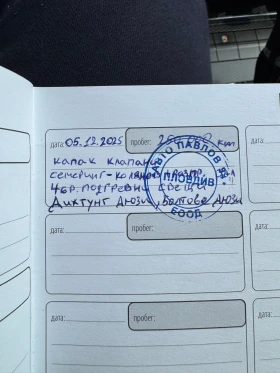 дата: 05.12.2025 пробег: 250 км
КАПАК КЛАПАНИ
СЕМЕРИНГ-КОЛЯНО
4бр. ПОДГРЕВНИ СВЕЩИ
ДИХТУНГ ДЮЗИ, БОЛТОВЕ ДЮЗИ
АВТО ПАВЛОВ
ПЛОВДИВ
ЕООД
дата: пробег:
дата: пробег: